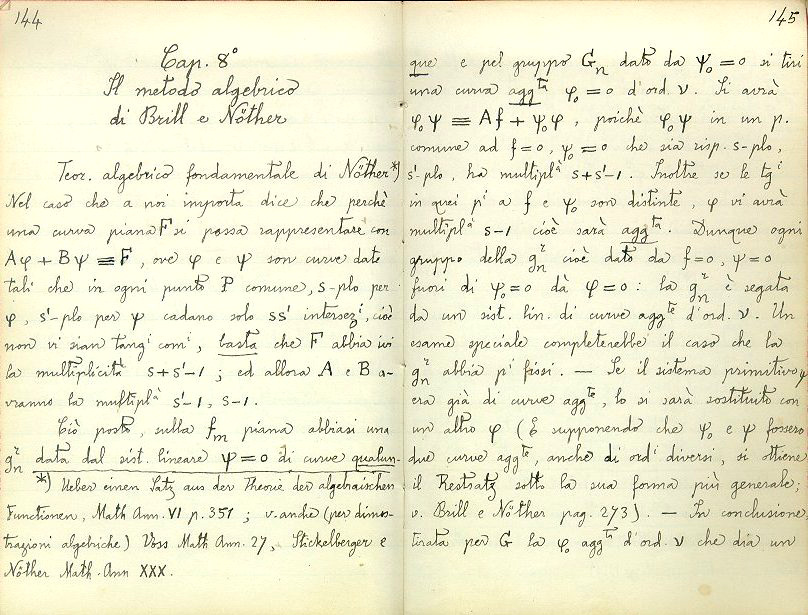 144
Cap. 8°
Il metodo algebrico
di Brill e Nöther
Teor. algebrico fondamentale di Nöther*)
Nel caso che a noi importa dice che perchè
una curva piana F si possa rappresentare con
Aφ + Bψ ≡ F, ove φ e ψ son curve date
tali che in ogni punto P comune, s-plo per
φ, s'-plo per ψ cadano solo ss' intersezⁱ, cioè
non vi sian tangⁱ comⁱ, basta che F abbia ivi
la multiplicità s+s'-1; ed allora A e B a-
vranno la multiplᵃ̀ s'-1, s-1.
Ciò posto, sulla fₘ piana abbiasi una
gₙʳ data dal sist. lineare ψ=0 di curve qualun-
*) Ueber einen Satz aus der Theorie der algebraischen
Functionen, Math Ann. VI p. 351; v. anche (per dimos-
trazioni algebriche) Voss Math Ann. 27, Stickelberger e
Nöther Math. Ann XXX.
145
que e pel gruppo Gₙ dato da ψ₀=0 si tiri
una curva aggᵗᵃ φ₀=0 d'ord. ν. Si avrà
φ₀ψ ≡ Af + ψ₀φ, poichè φ₀ψ in un p.
comune ad f=0, ψ₀=0 che sia risp. s-plo,
s'-plo, ha multiplᵃ̀ s+s'-1. Inoltre se le tgⁱ
in quei pⁱ a f e ψ₀ son distinte, φ vi avrà
multiplᵃ̀ s-1 cioè sarà aggᵗᵃ. Dunque ogni
gruppo della gₙʳ cioè dato da f=0, ψ=0
fuori di ψ₀=0 dà φ=0: la gₙʳ è segata
da un sist. lin. di curve aggᵗᵉ d'ord. ν. Un
esame speciale completerebbe il caso che la
gₙʳ abbia pⁱ fissi. — Se il sistema primitivo ψ
era già di curve aggᵗᵉ, lo si sarà sostituito con
un altro φ (E supponendo che φ₀ e ψ fossero
due curve aggᵗᵉ, anche di ordⁱ diversi, si ottiene
il Restsatz sotto la sua forma più generale;
v. Brill e Nöther pag. 273). — In conclusione
tirata per G la φ₀ aggᵗᵃ d'ord. ν che dia un